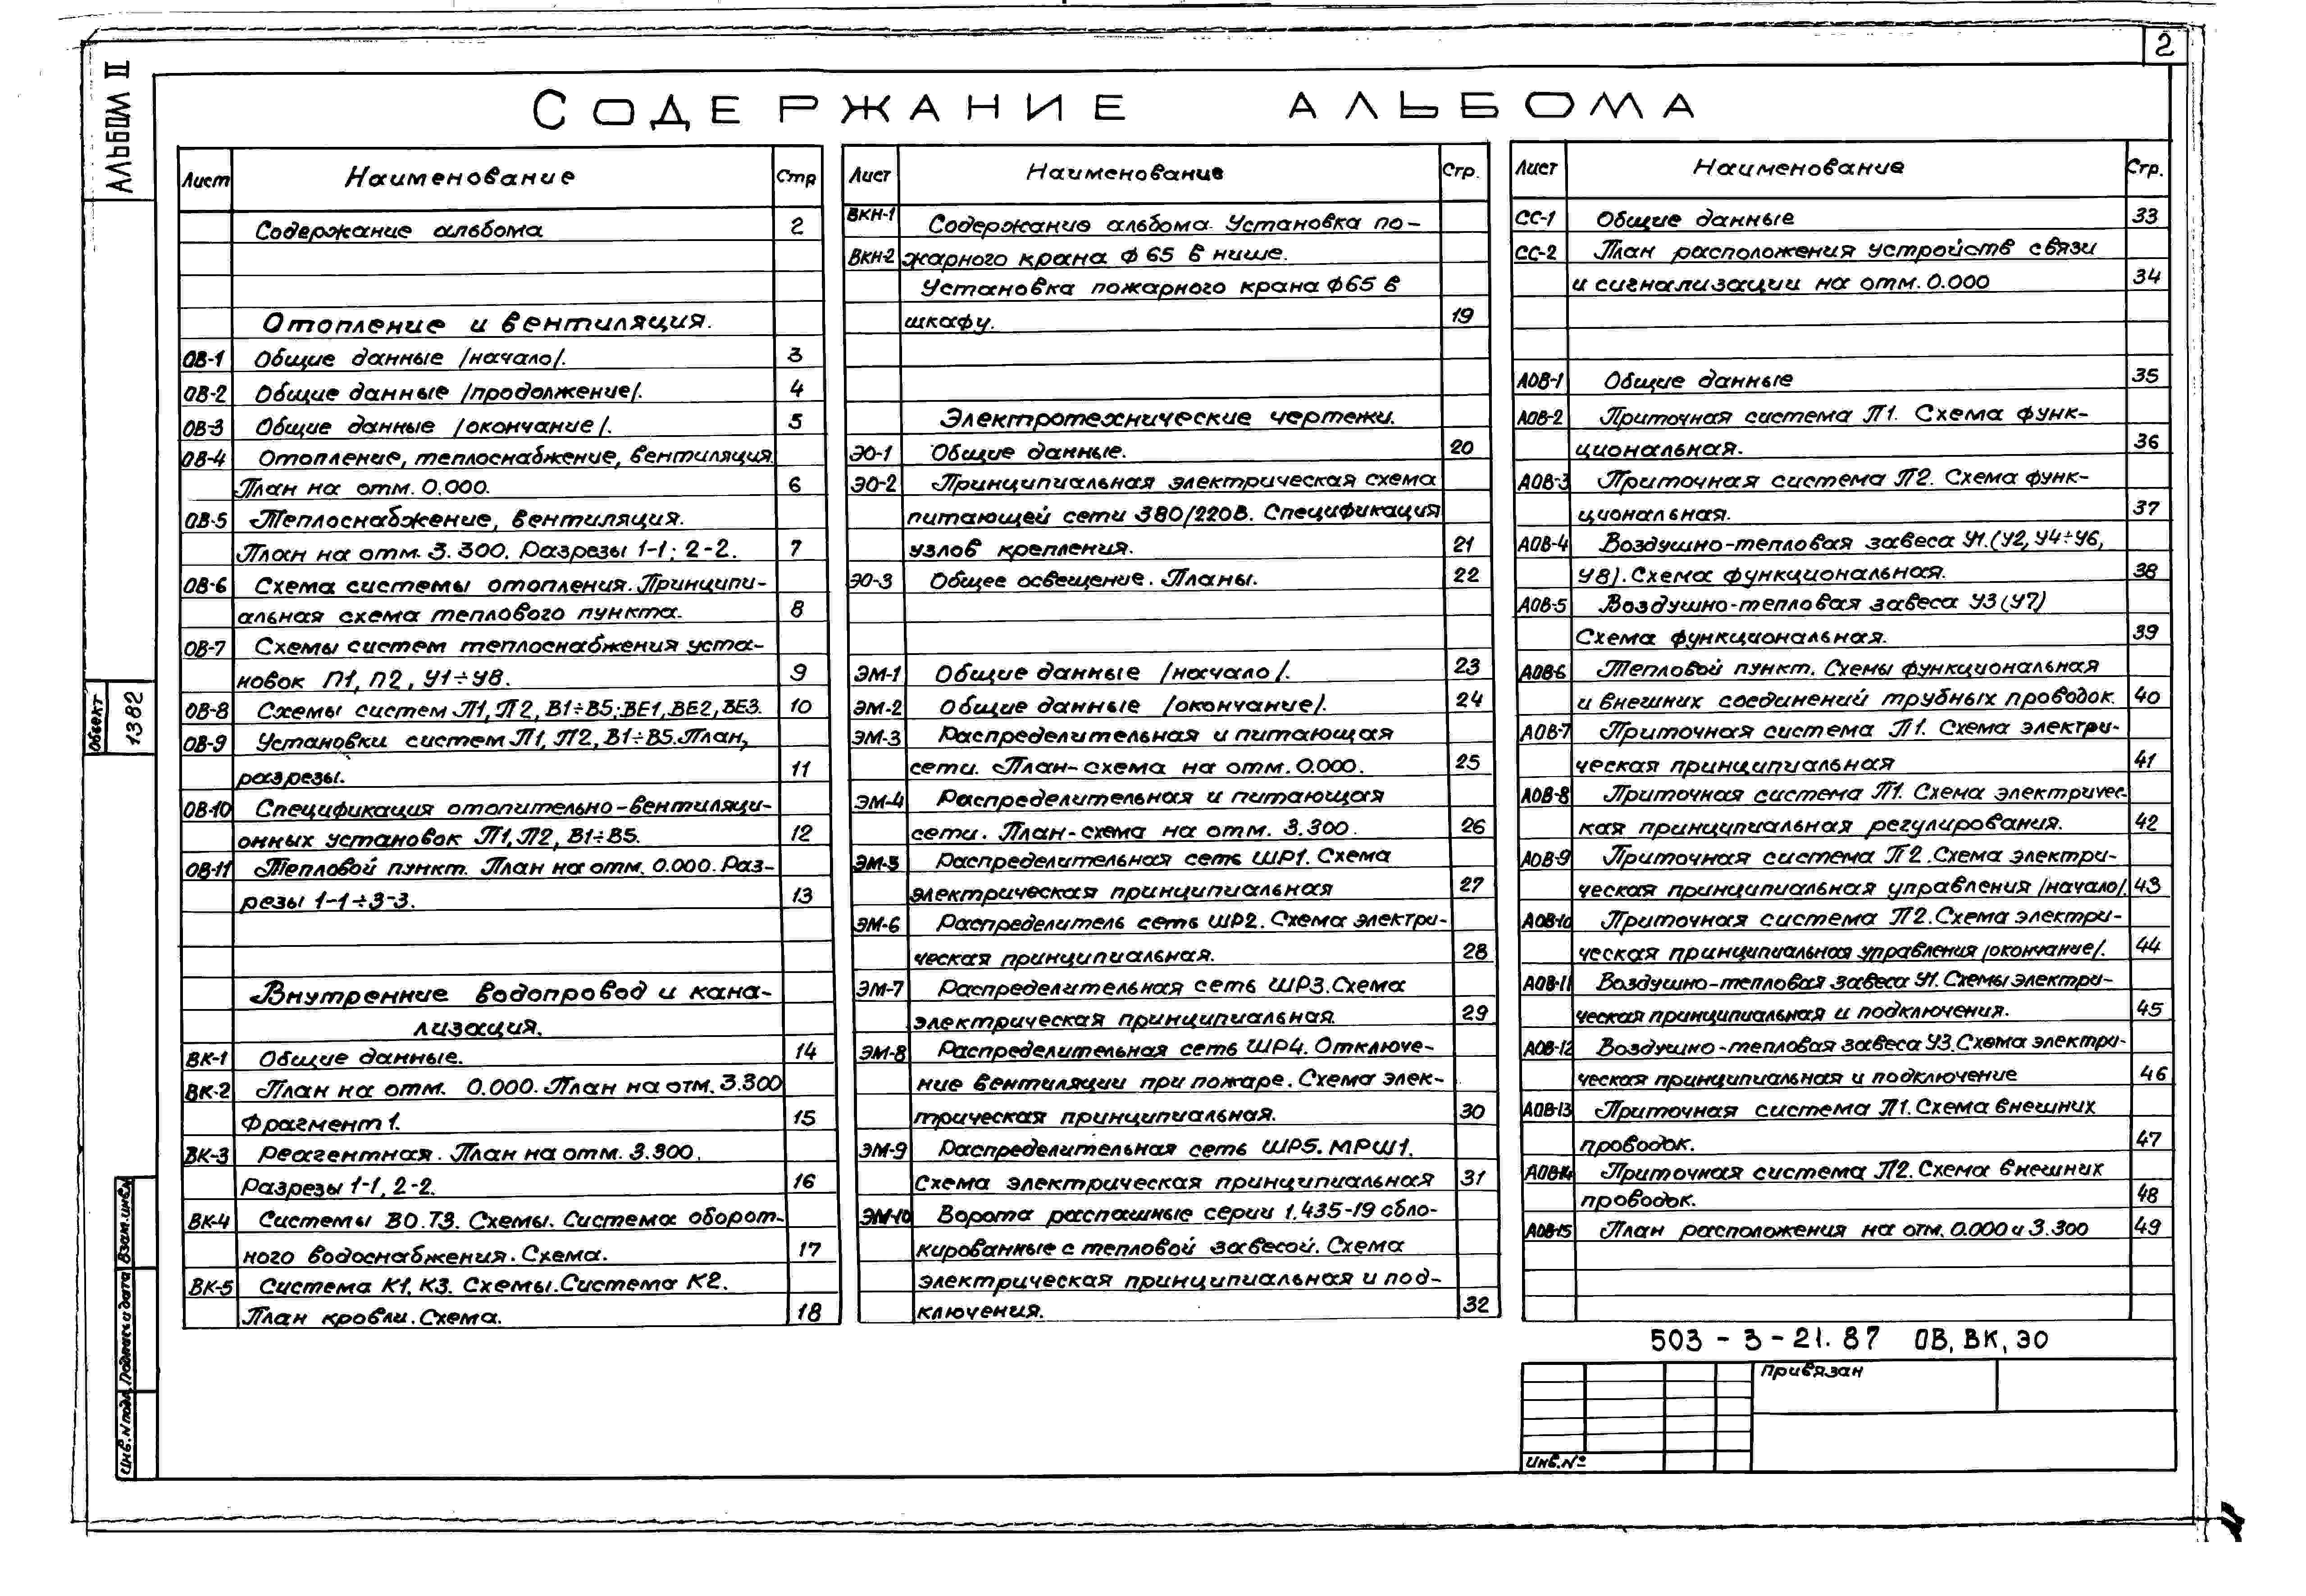 2
АЛЬБОМ II
СОДЕРЖАНИЕ АЛЬБОМА
Лист Наименование Стр
Содержание альбома 2
Отопление и вентиляция.
ОВ-1 Общие данные /начало/. 3
ОВ-2 Общие данные /продолжение/. 4
ОВ-3 Общие данные /окончание/. 5
ОВ-4 Отопление, теплоснабжение, вентиляция.
План на отм. 0.000. 6
ОВ-5 Теплоснабжение, вентиляция.
План на отм. 3.300. Разрезы 1-1; 2-2. 7
ОВ-6 Схема системы отопления. Принципи-
альная схема теплового пункта. 8
ОВ-7 Схемы систем теплоснабжения уста-
новок П1, П2, У1÷У8. 9
ОВ-8 Схемы систем П1, П2, В1÷В5; ВЕ1, ВЕ2, ВЕ3. 10
ОВ-9 Установки систем П1, П2, В1÷В5. План,
разрезы. 11
ОВ-10 Спецификация отопительно-вентиляци-
онных установок П1, П2, В1÷В5. 12
ОВ-11 Тепловой пункт. План на отм. 0.000. Раз-
резы 1-1÷3-3. 13
Внутренние водопровод и кана-
лизация.
ВК-1 Общие данные. 14
ВК-2 План на отм. 0.000. План на отм. 3.300
Фрагмент 1. 15
ВК-3 Реагентная. План на отм. 3.300.
Разрезы 1-1, 2-2. 16
ВК-4 Системы В0. Т3. Схемы. Система оборот-
ного водоснабжения. Схема. 17
ВК-5 Система К1, К3. Схемы. Система К2.
План кровли. Схема. 18
Лист Наименование Стр.
ВКН-1 Содержание альбома. Установка по-
ВКН-2 жарного крана ф 65 в нише.
Установка пожарного крана ф65 в
шкафу. 19
Электротехнические чертежи.
ЭО-1 Общие данные. 20
ЭО-2 Принципиальная электрическая схема
питающей сети 380/220В. Спецификация
узлов крепления. 21
ЭО-3 Общее освещение. Планы. 22
ЭМ-1 Общие данные /начало/. 23
ЭМ-2 Общие данные /окончание/. 24
ЭМ-3 Распределительная и питающая
сети. План-схема на отм. 0.000. 25
ЭМ-4 Распределительная и питающая
сети. План-схема на отм. 3.300. 26
ЭМ-5 Распределительная сеть ШР1. Схема
электрическая принципиальная 27
ЭМ-6 Распределитель сеть ШР2. Схема электри-
ческая принципиальная. 28
ЭМ-7 Распределительная сеть ШР3. Схема
электрическая принципиальная. 29
ЭМ-8 Распределительная сеть ШР4. Отключе-
ние вентиляции при пожаре. Схема элек-
трическая принципиальная. 30
ЭМ-9 Распределительная сеть ШР5. МРШ1.
Схема электрическая принципиальная 31
ЭМ-10 Ворота распашные серии 1.435-19 сбло-
кированные с тепловой завесой. Схема
электрическая принципиальная и под-
ключения. 32
Лист Наименование Стр.
СС-1 Общие данные 33
СС-2 План расположения устройств связи
и сигнализации на отм. 0.000 34
АОВ-1 Общие данные 35
АОВ-2 Приточная система П1. Схема функ-
циональная. 36
АОВ-3 Приточная система П2. Схема функ-
циональная. 37
АОВ-4 Воздушно-тепловая завеса У1. (У2, У4÷У6,
У8). Схема функциональная. 38
АОВ-5 Воздушно-тепловая завеса У3 (У7)
Схема функциональная. 39
АОВ-6 Тепловой пункт. Схемы функциональная
и внешних соединений трубных проводок. 40
АОВ-7 Приточная система П1. Схема электри-
ческая принципиальная 41
АОВ-8 Приточная система П1. Схема электричес-
кая принципиальная регулирования. 42
АОВ-9 Приточная система П2. Схема электри-
ческая принципиальная управления /начало/. 43
АОВ-10 Приточная система П2. Схема электри-
ческая принципиальная управления /окончание/. 44
АОВ-11 Воздушно-тепловая завеса У1. Схемы электри-
ческая принципиальная и подключения. 45
АОВ-12 Воздушно-тепловая завеса У3. Схема электри-
ческая принципиальная и подключение 46
АОВ-13 Приточная система П1. Схема внешних
проводок. 47
АОВ-14 Приточная система П2. Схема внешних
проводок. 48
АОВ-15 План расположения на отм. 0.000 и 3.300 49
503-3-21.87 ОВ, ВК, ЭО
Привязан
Инв.№
Объект
1382
Взам.инв.№
Подпись и дата
Инв.№ подл.